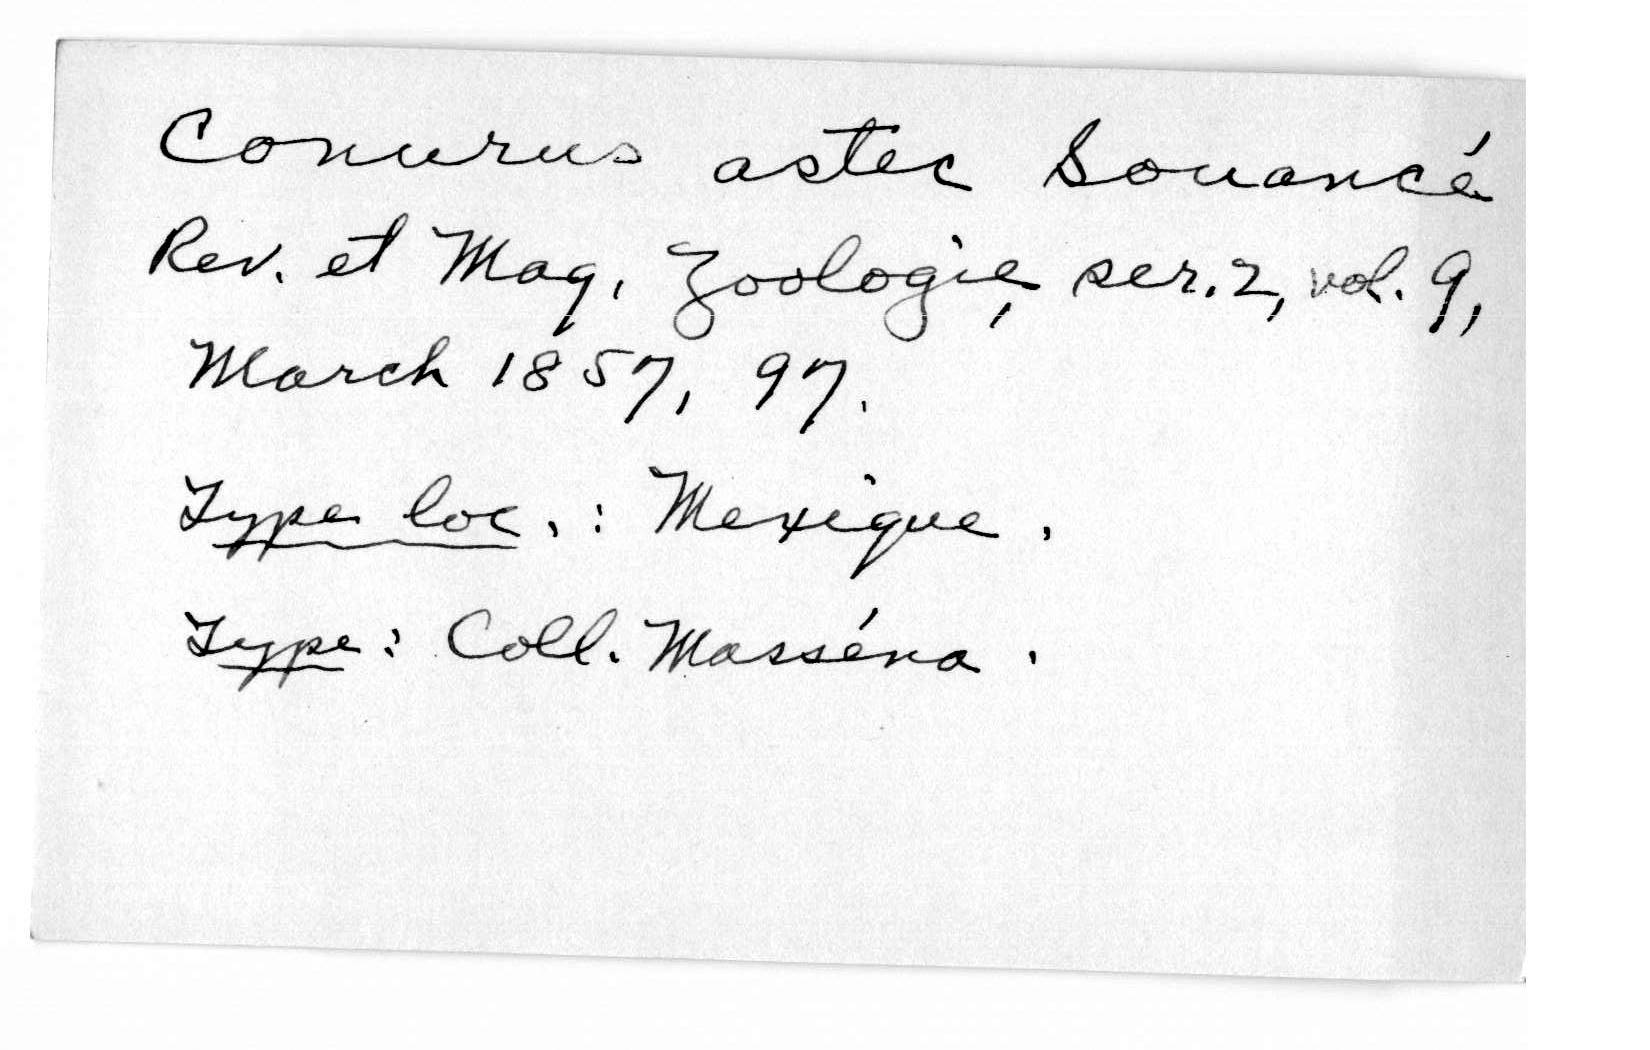 Conurus astec Souancé
Rev. et Mag. Zoologie, ser. 2, vol. 9,
March 1857, 97.
Type loc. : Mexique.
Type : Coll. Masséna.